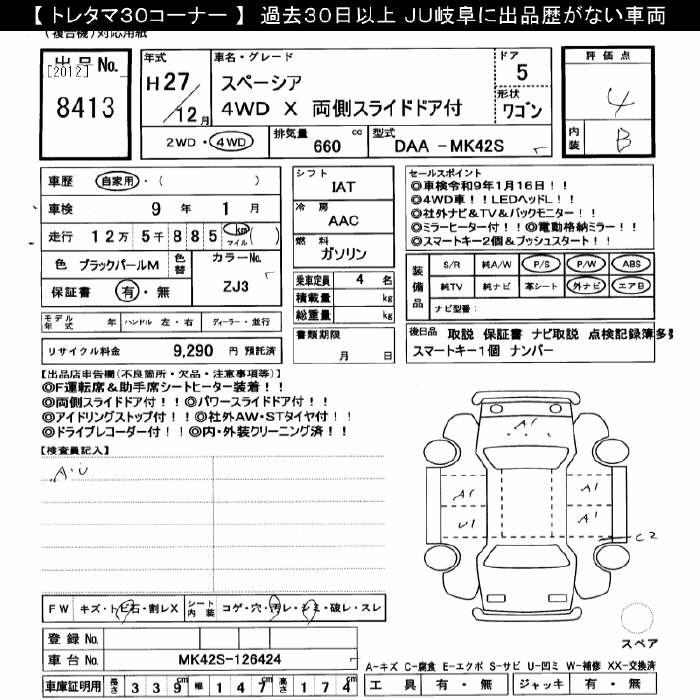 【 トレタマ30コーナー 】 過去30日以上 JU岐阜に出品歴がない車両
(複合機)対応用紙
出品No.
[2012]
8413
年式
H27/12月
車名・グレード
スペーシア
4WD X 両側スライドドア付
ドア
5
形状
ワゴン
評価点
4
内装
B
2WD・4WD
排気量
660 cc
型式
DAA -MK42S
車歴 自家用・( )
車検 9年 1月
走行 12万5千885 km マイル ( )
色 ブラックパールM
色替
カラーNo.
ZJ3
保証書 有・無
シフト
IAT
冷房
AAC
燃料
ガソリン
乗車定員 4 名
積載量 kg
総重量 kg
セールスポイント
◎車検令和9年1月16日!!
◎4WD車!!LEDヘッドL!!
◎社外ナビ&TV&バックモニター!!
◎ミラーヒーター付!!◎電動格納ミラー!!
◎スマートキー2個&プッシュスタート!!
装備品
S/R 純A/W P/S P/W ABS
純TV 純ナビ 革シート 外ナビ エアB
ナビ型番:
モデル年式 年 ハンドル 左・右 ディーラー・並行
リサイクル料金 9,290 円 預託済
書類期限
月 日
後日品 取説 保証書 ナビ取説 点検記録簿多数
スマートキー1個 ナンバー
【出品店申告欄(不良箇所・欠品・注意事項等)】
◎F運転席&助手席シートヒーター装着!!
◎両側スライドドア付!!◎パワースライドドア付!!
◎アイドリングストップ付!!◎社外AW・STタイヤ付!!
◎ドライブレコーダー付!!◎内・外装クリーニング済!!
【検査員記入】
A・U
A1
A1
A1
U1
A1
C2
FW キズ・トビ石・割レX
シート内装 コゲ・穴・汚レ・シミ・破レ・スレ
登録No.
車台No. MK42S-126424
車庫証明用 長さ 339cm 幅 147cm 高さ 174cm
スペア
A-キズ C-腐食 E-エクボ S-サビ U-凹ミ W-補修 XX-交換済
工具 有・無 ジャッキ 有・無